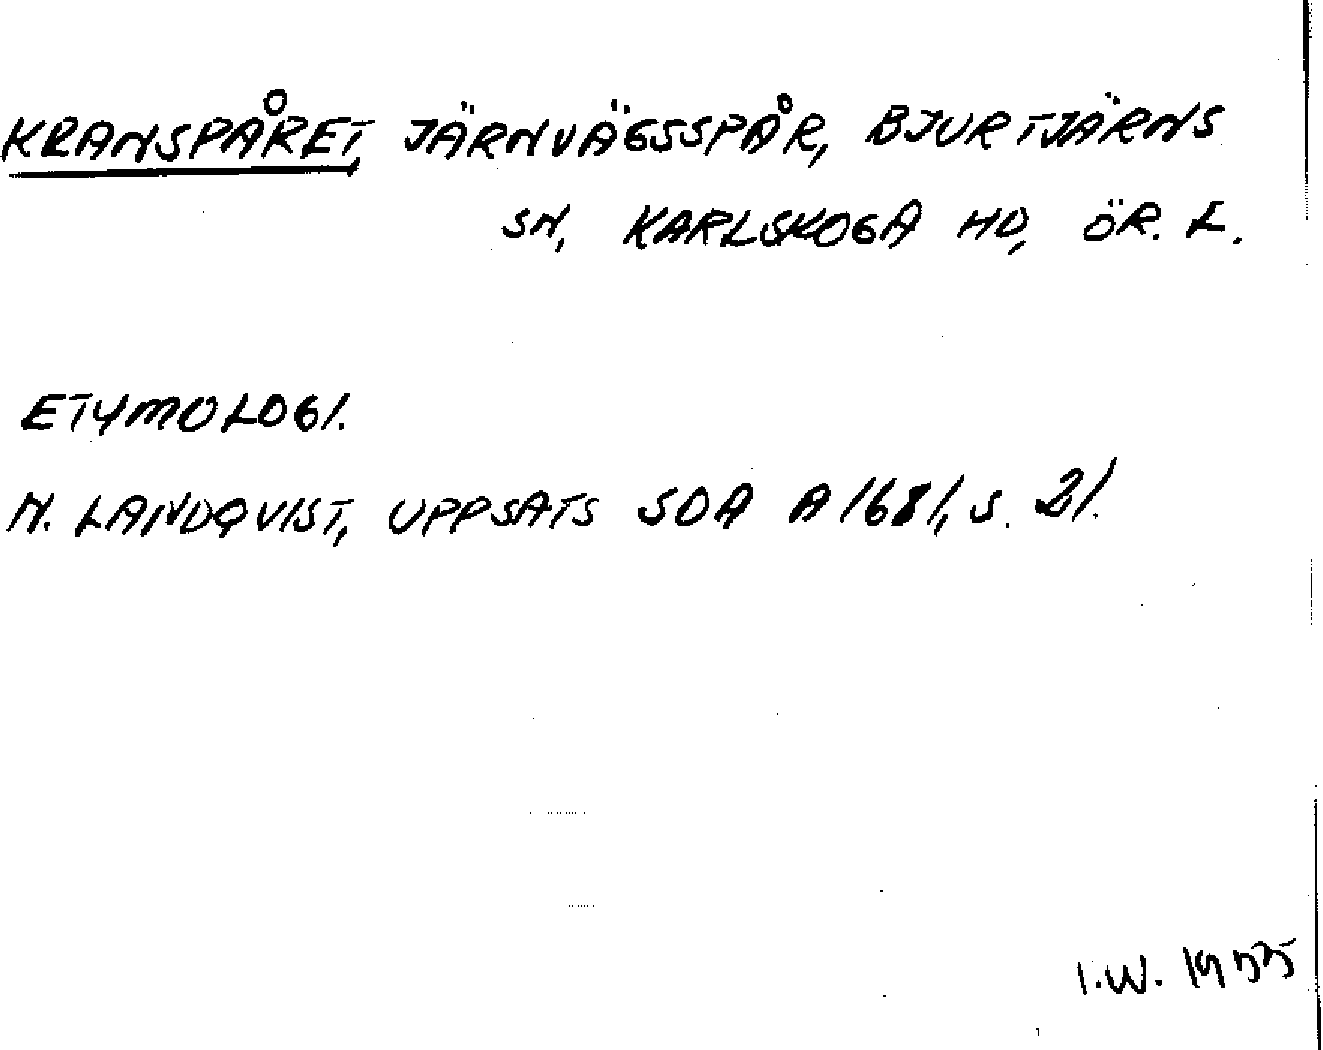 KRANSPÅRET, JÄRNVÄGSSPÅR, BJURTJÄRNS
SN, KARLSKOGA HD, ÖR. L.
ETYMOLOGI.
N. LANDQVIST, UPPSATS SOA A 1681, S. 21.
I.W. 1955